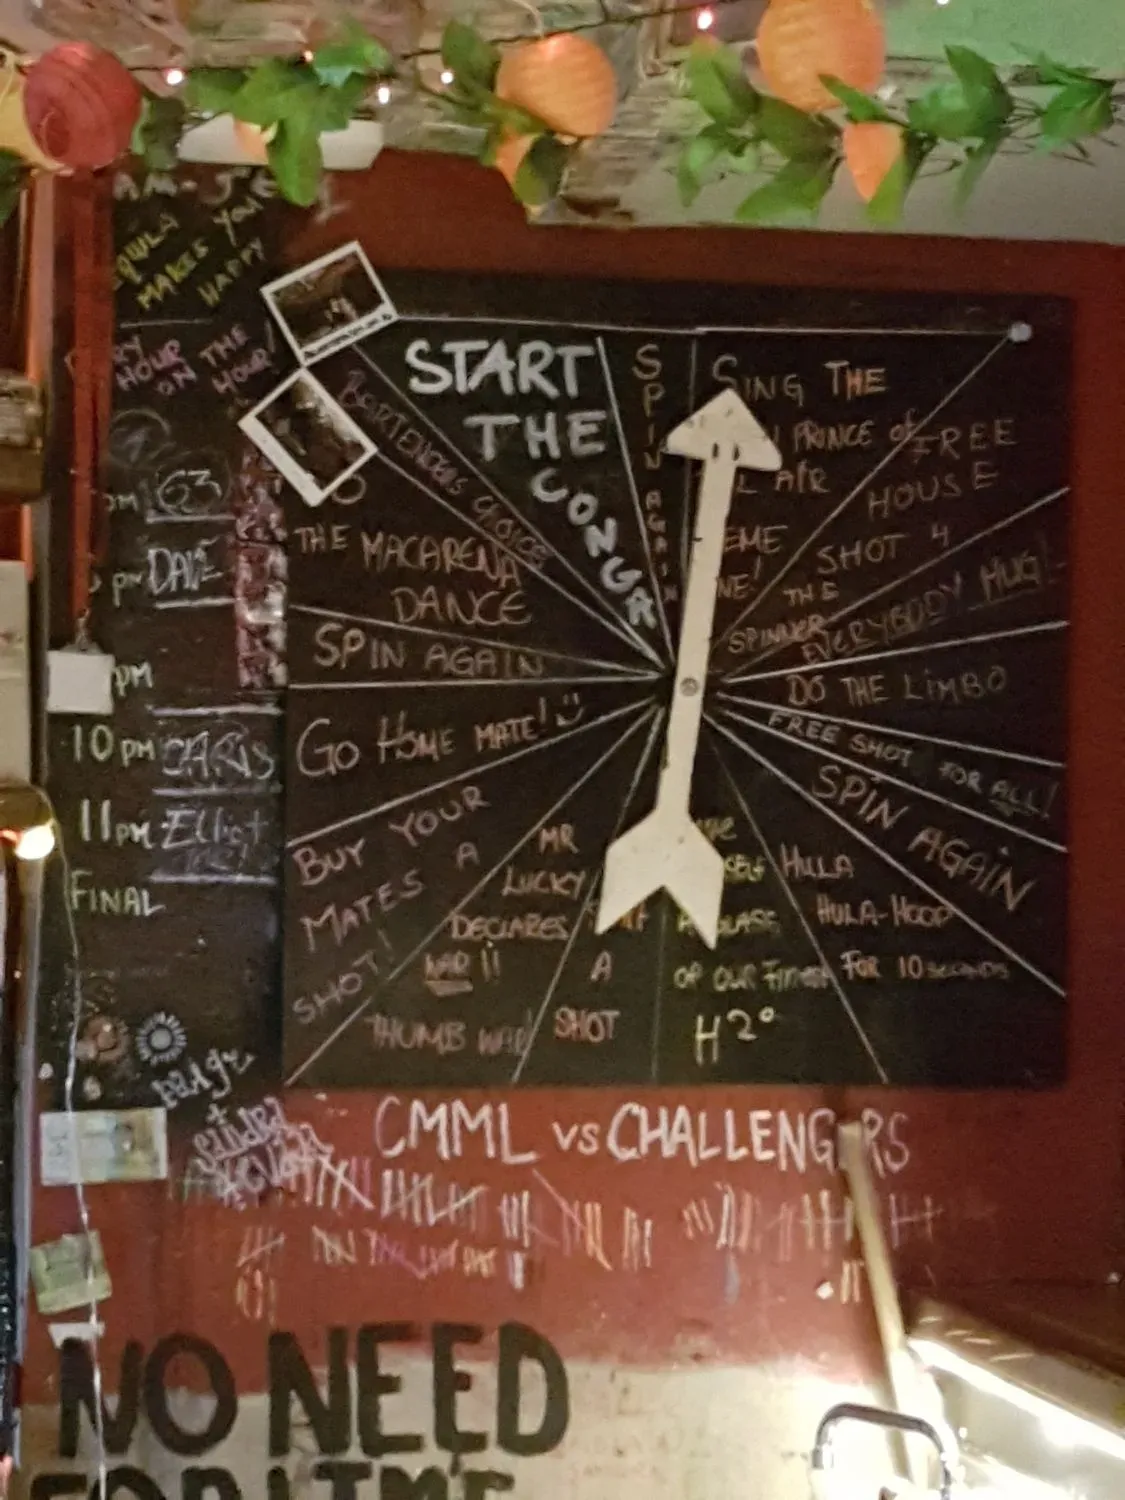 MAKES YOU
HAPPY
HOUR
ON THE
HOUR!
63
DAVE
pm
10 pm CHRIS
11 pm Elliot
FINAL
BARTENDERS CHOICE
START
THE
CONGA
SPIN AGAIN
SING THE
PRINCE OF
AIR
FREE
HOUSE
SHOT 4
THE
SPINNER
EVERYBODY HUG!
DO THE LIMBO
FREE SHOT FOR ALL!
SPIN AGAIN
HULLA
HULA-HOOP
FOR 10 SECONDS
A GLASS
OF OUR FINEST
H2O
A
SHOT
MR
LUCKY
DECLARES
WAR!!
THUMB WAR
BUY YOUR
MATES A
SHOT!
GO HOME MATE!
SPIN AGAIN
THE MACARENA
DANCE
CMML vs CHALLENGERS
NO NEED